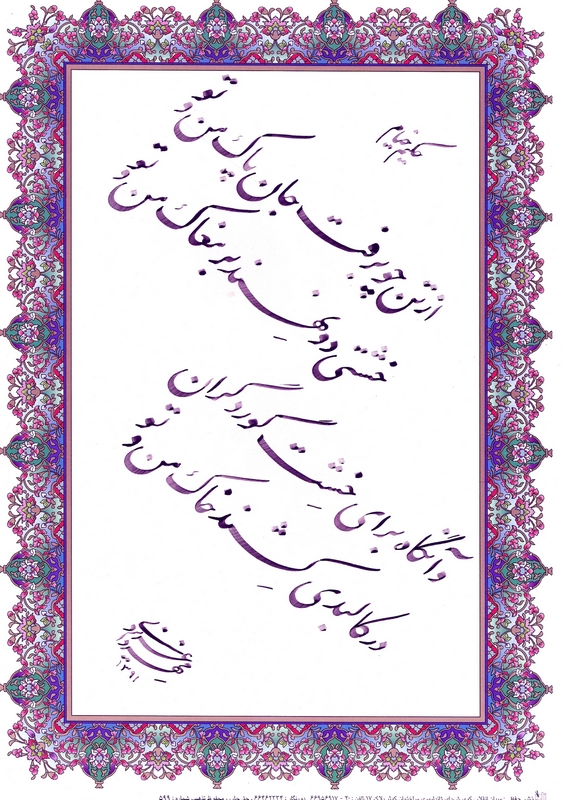 حکیم خیام
از تن چو برفت جان پاک من و تو
خشتی دو نهند بر مغاک من و تو
وآنگاه برای خشت گور دگران
در کالبدی کشند خاک من و تو